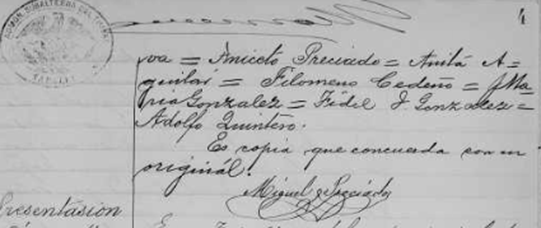 4
va = Aniceto Preciado = Anita A-
guilar = Filomeno Cedeño = J. Ma-
ria Gonzalez = Fidel J. Gonzalez =
Adolfo Quintero.
Es copia que concuerda con su
originál.
Miguel Preciado
Presentasion